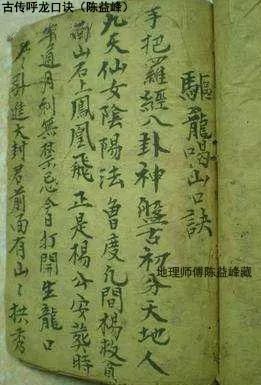 古传呼龙口诀（陈益峰）
驅龍喝山口訣
手把羅經八卦神盤古初分天地人
九天仙女陰陽法曾度凡間楊救貧
南山石上鳳凰飛正是楊公安葬時
年通月利無禁忌今日打開生龍口
引進大封君前面有山山拱秀
地理师傅陈益峰藏